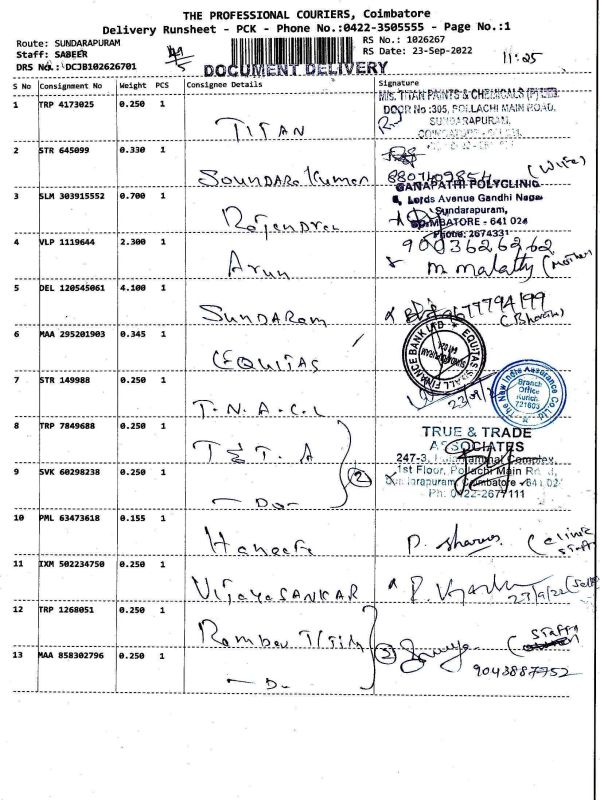 THE PROFESSIONAL COURIERS, Coimbatore
Delivery Runsheet - PCK - Phone No.:0422-3505555 - Page No.:1
Route: SUNDARAPURAM
RS No.: 1026267
Staff: SABEER
RS Date: 23-Sep-2022
11:25
DRS No.: DCJB102626701
DOCUMENT DELIVERY
S No Consignment No Weight PCS Consignee Details Signature
1 TRP 4173025 0.250 1 TITAN
M/S. TITAN PAINTS & CHEMICALS (P) LTD.
DOOR No :305, POLLACHI MAIN ROAD,
SUNDARAPURAM,
2 STR 645099 0.330 1 Soundara Kumar
8807409854 (Wife)
3 SLM 303915552 0.700 1 Rajendran
GANAPATHI POLYCLINIC
6, Lords Avenue Gandhi Nagar
Sundarapuram,
COIMBATORE - 641 024
Phone: 2674331
4 VLP 1119644 2.300 1 Arun
9003626262
m. malathy (mother)
5 DEL 120545061 4.100 1 SUNDARam
9677794199
(Bharani)
6 MAA 295201903 0.345 1 EQUITAS
EQUITAS SMALL FINANCE BANK LTD
SUNDARAPURAM
641 024
7 STR 149988 0.250 1 T.N.A.C.L
The New India Assurance Co Ltd
Branch
Office
Kurichi
721603
8 TRP 7849688 0.250 1 T & T. A
TRUE & TRADE
ASSOCIATES
9 SVK 60298238 0.250 1 - Do - 2
1st Floor, Pollachi Main Road,
Sundarapuram, Coimbatore - 641 024
Ph: 0422-2677111
10 PML 63473618 0.155 1 Haneefa
P. Sharms (clinic staff)
11 IXM 502234750 0.250 1 VIJAYASANKAR
23/9/22 (Self)
12 TRP 1268051 0.250 1
2
(Staff)
13 MAA 858302796 0.250 1 - Do
9043887752